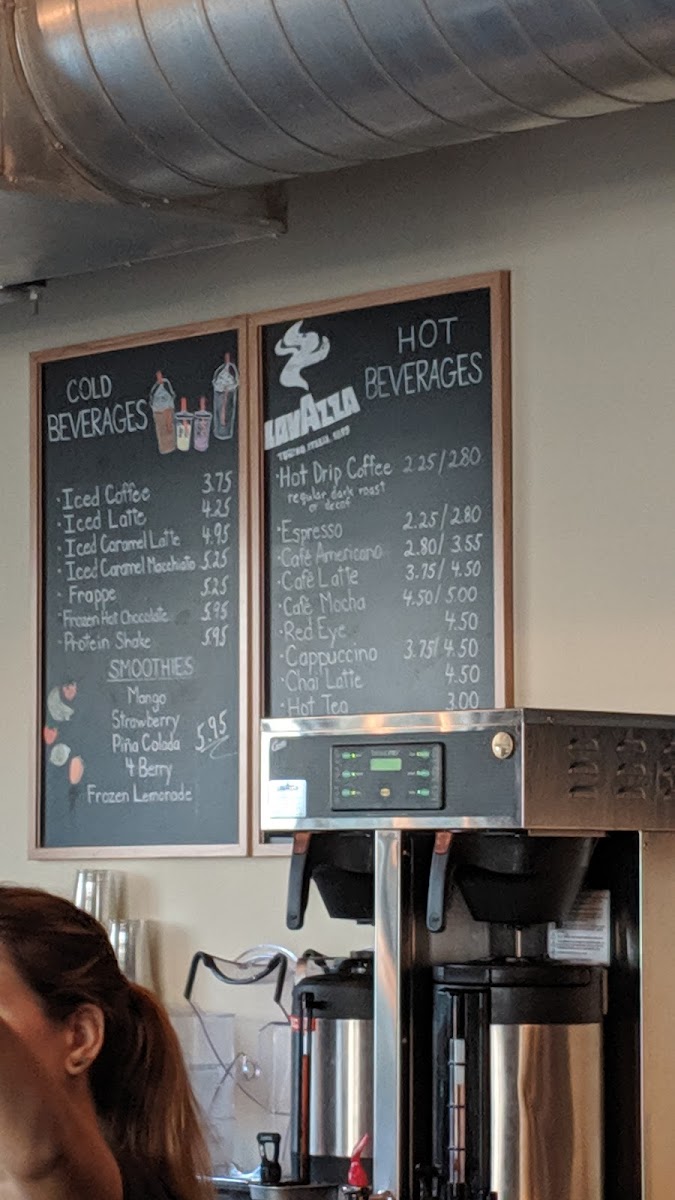 COLD
BEVERAGES
· Iced Coffee 3.75
· Iced Latte 4.25
· Iced Caramel Latte 4.95
· Iced Caramel Macchiato 5.25
· Frappe 5.25
· Frozen Hot Chocolate 5.95
· Protein Shake 5.95
SMOOTHIES
Mango
Strawberry
Piña Colada 5.95
4 Berry
Frozen Lemonade
LAVAZZA
TORINO, ITALIA, 1895
HOT
BEVERAGES
· Hot Drip Coffee 2.25/2.80
regular, dark roast
or decaf
· Espresso 2.25/2.80
· Café Americano 2.80/3.55
· Café Latte 3.75/4.50
· Café Mocha 4.50/5.00
· Red Eye 4.50
· Cappuccino 3.75/4.50
· Chai Latte 4.50
· Hot Tea 3.00